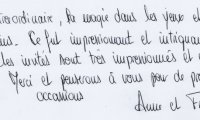 extraordinaire, la magie dans les yeux et
Ce fut impressionnant et intriguant
les invités sont très impressionnés et
Merci et penserons à vous pour de pr
occasions
Anne et F